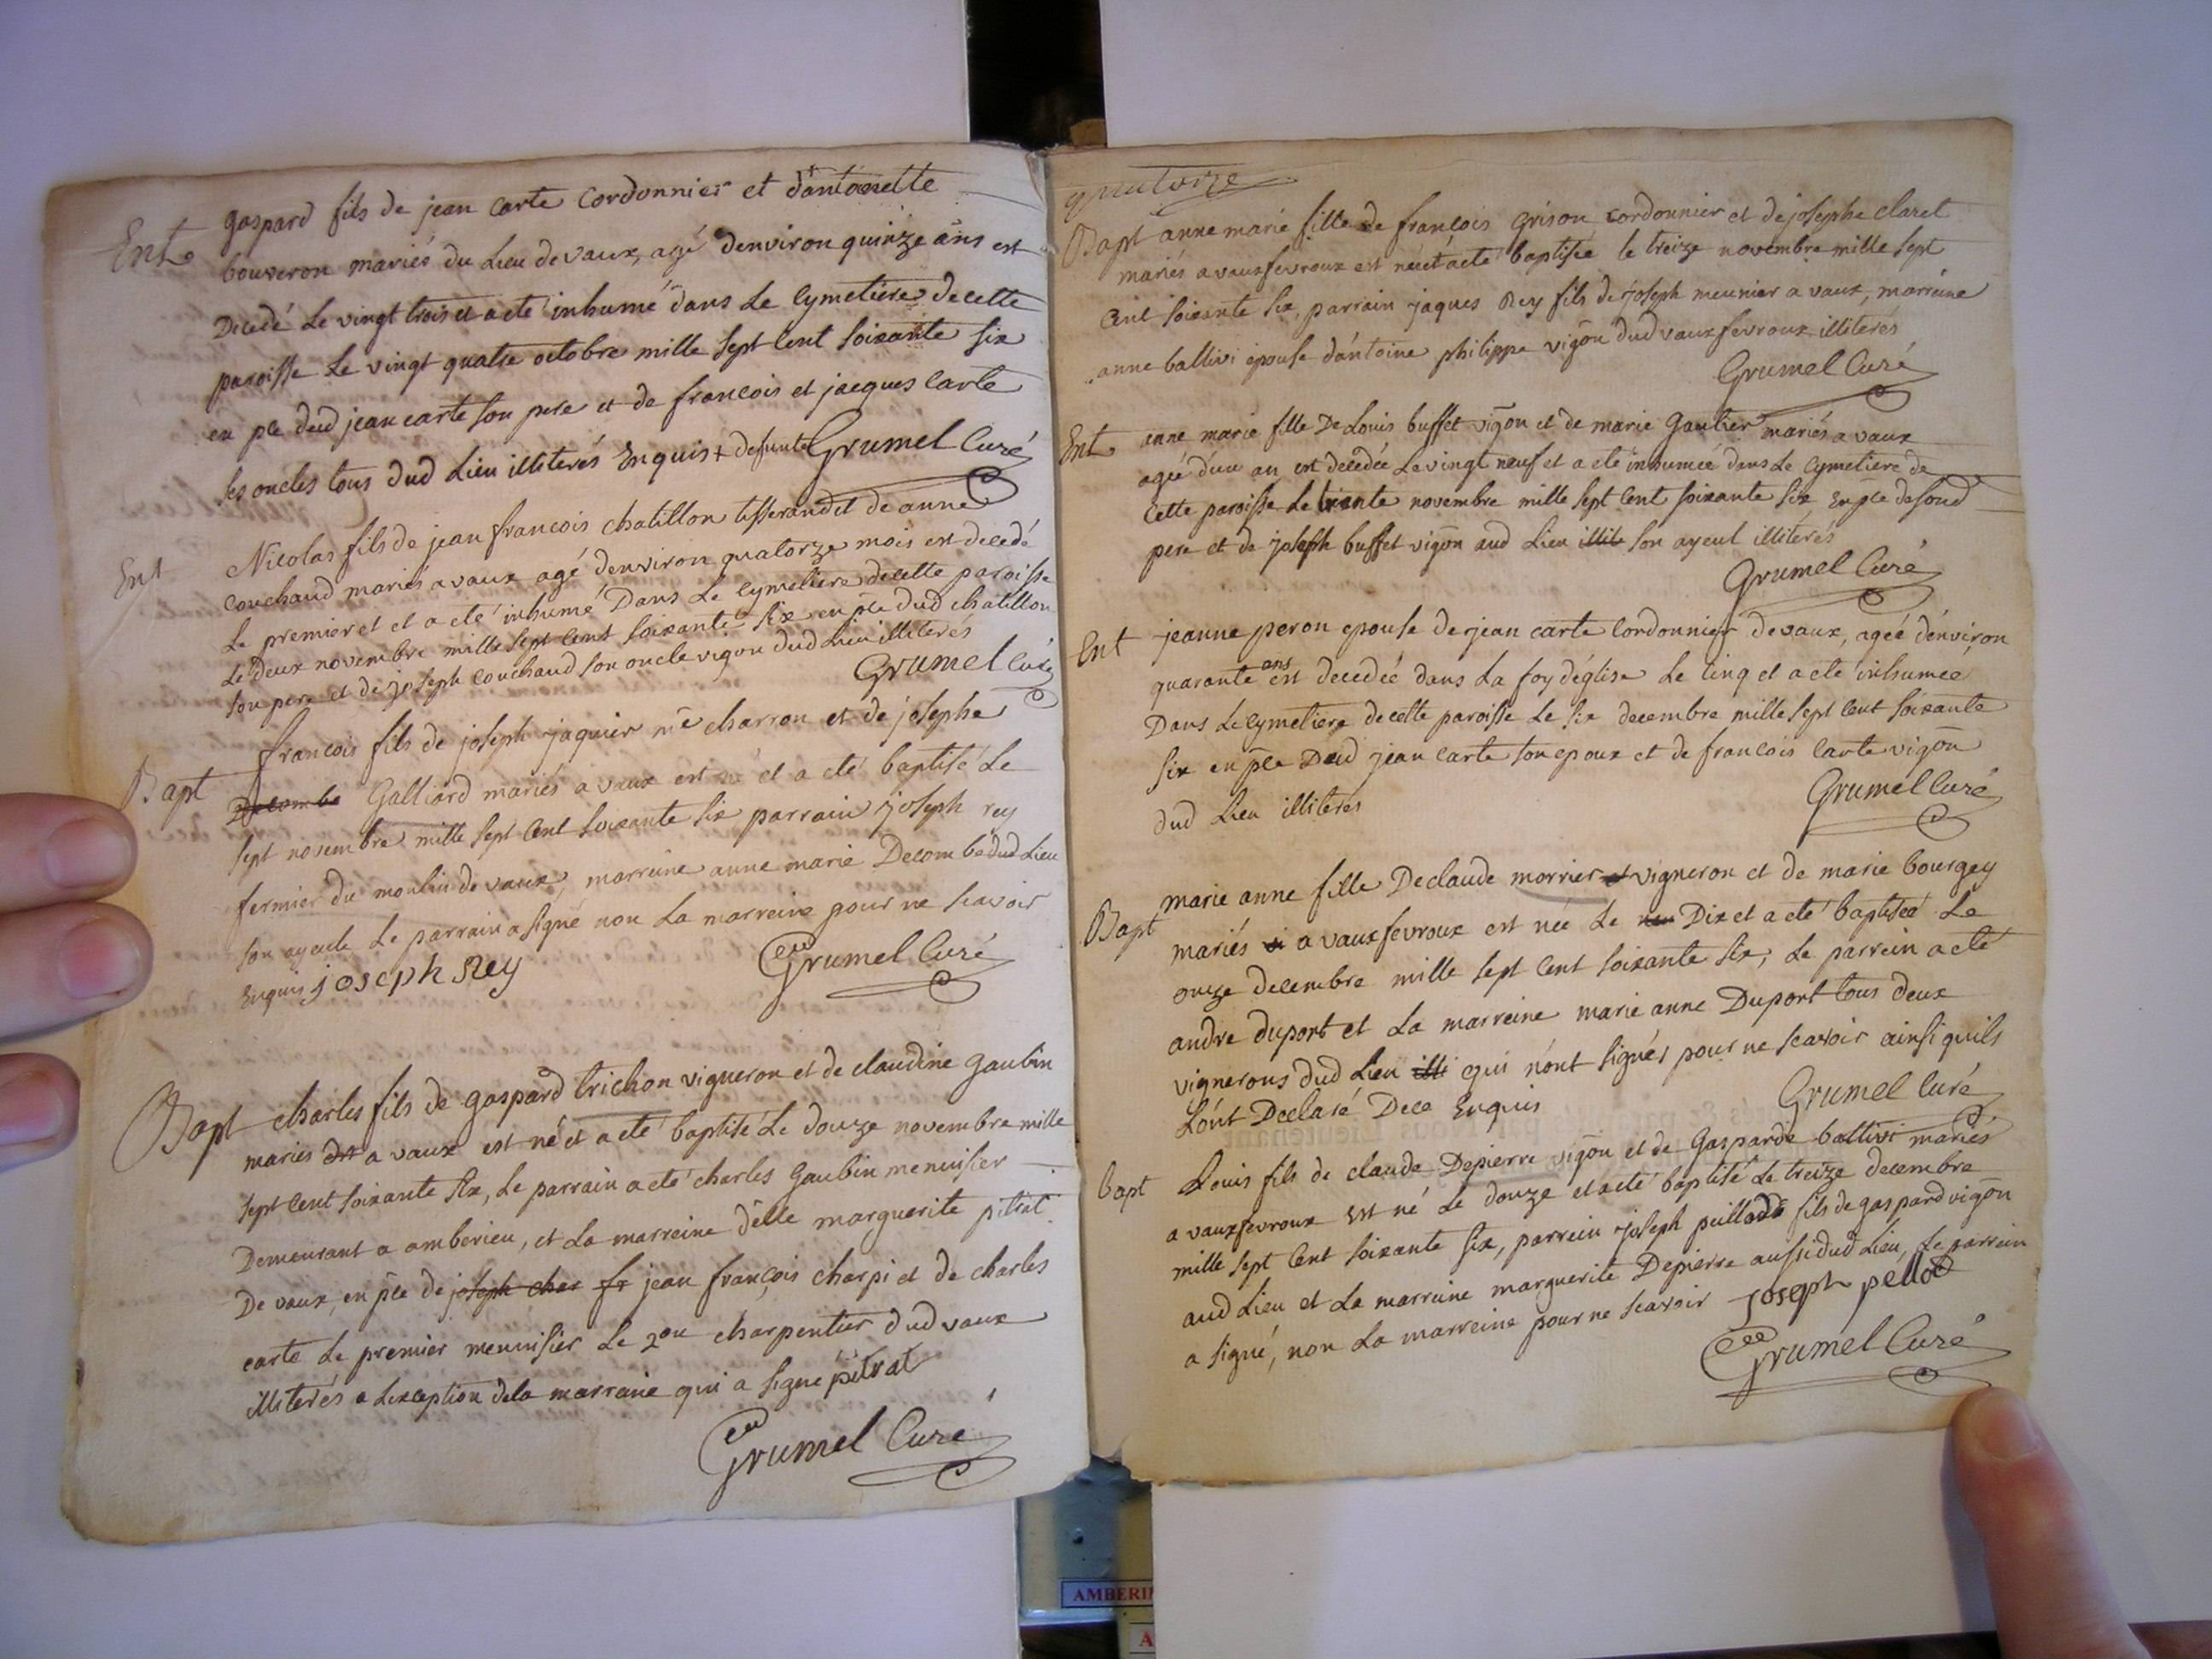 Ent
gaspard fils de jean carte cordonnier et d'antoinette
bouveron mariés du Lieu de vaux, agé d'environ quinze ans est
Decedé Le vingt trois et a eté inhumé dans Le Cymetiere de cette
paroisse Le vingt quatre octobre mille sept Cent soixante six
en pce dud jean carte son pere et de francois et jacques Carte
ses oncles tous dud Lieu illiterés Enquis + defunte Grumel Curé
Ent
Nicolas fils de jean francois chatillon tisserand et de anne
couchaud mariés a vaux agé d'environ quatorze mois est decedé
Le premier et et a eté inhumé Dans Le Cymetiere de cette paroisse
Le deux novembre mille sept Cent soixante six en pce dud chatillon
son pere et de joseph couchaud son oncle vigon dud Lieu illiterés
Grumel Curé
Bapt
francois fils de joseph jaquier me charron et de josephe
Decombe Galliard mariés a vaux est né et a eté baptisé Le
sept novembre mille sept Cent soixante six parrain joseph rey
fermier du moulin de vaux, marreine anne marie Decombe dud Lieu
son ayeule Le parrain a signé non La marreine pour ne scavoir
Enquis joseph Rey
Grumel Curé
Bapt
charles fils de gaspard trichon vigneron et de claudine gaubin
mariés a vaux est né et a eté baptisé Le douze novembre mille
sept Cent soixante six, Le parrain a eté charles Gaubin menuisier
Demeurant a amberieu, et La marreine delle marguerite pitrat
De vaux, en pce de joseph char fr jean françois charpi et de charles
carte Le premier menuisier Le 2on charpentier dud vaux
illiterés a Lexception de la marraine qui a signé pitrat
Grumel Curé
quatorze
Bapt
anne marie fille de francois Grison cordonnier et de josephe claret
mariés a vauxfevroux est née et a eté baptisée le treize novembre mille sept
Cent soixante six, parrain jaques Rey fils de joseph meunier a vaux, marreine
anne ballivi epouse d'antoine philippe vigon dud vauxfevroux illiterés
Grumel Curé
Ent
anne marie fille De Louis buffet vigon et de marie Gautier mariés a vaux
agée d'un an est decedée Le vingt neuf et a eté inhumée dans Le Cymetiere de
Cette paroisse Le trente novembre mille sept Cent soixante six En pce de sond
pere et de joseph buffet vigon aud Lieu illite son ayeul illiterés
Grumel Curé
Ent
jeanne peron epouse de jean carte Cordonnier de vaux, agée d'environ
quarante ans est decedée dans La foy d'église Le Cinq et a eté inhumee
Dans Le Cymetiere de cette paroisse Le six decembre mille sept Cent soixante
six en pce Dud jean Carte son epoux et de francois Carte vigon
dud Lieu illiteres
Grumel Curé
Bapt
marie anne fille De claude morrier et vigneron et de marie bourgey
mariés a vauxfevroux est née Le Dix et a eté baptisée Le
onze decembre mille sept Cent soixante six, Le parrein a eté
andre duport et La marreine marie anne Duport tous deux
vignerons dud Lieu illi qui n'ont signés pour ne scavoir ainsi quils
L'ont Declaré Dece Enquis
Grumel Curé
bapt
Louis fils de claude Depierre vigon et de Gasparde ballivi mariés
a vauxfevroux Est né Le douze et a eté baptisé Le treize decembre
mille sept Cent soixante six, parrein joseph peillod fils de gaspard vigon
aud Lieu et La marreine marguerite Depierre aussi dud Lieu, Le parrein
a signé, non La marreine pour ne scavoir joseph pellod
Grumel Curé
AMBERI
A